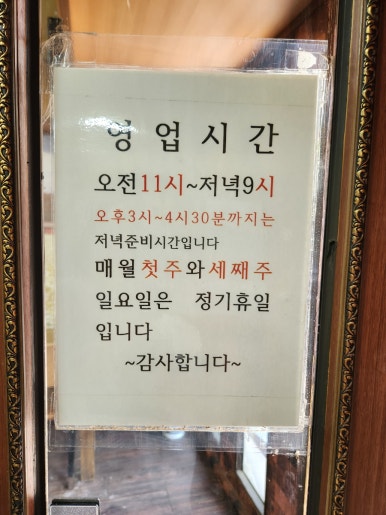 영업시간
오전11시~저녁9시
오후3시~4시30분까지는
저녁준비시간입니다
매월첫주와세째주
일요일은 정기휴일
입니다
~감사합니다~